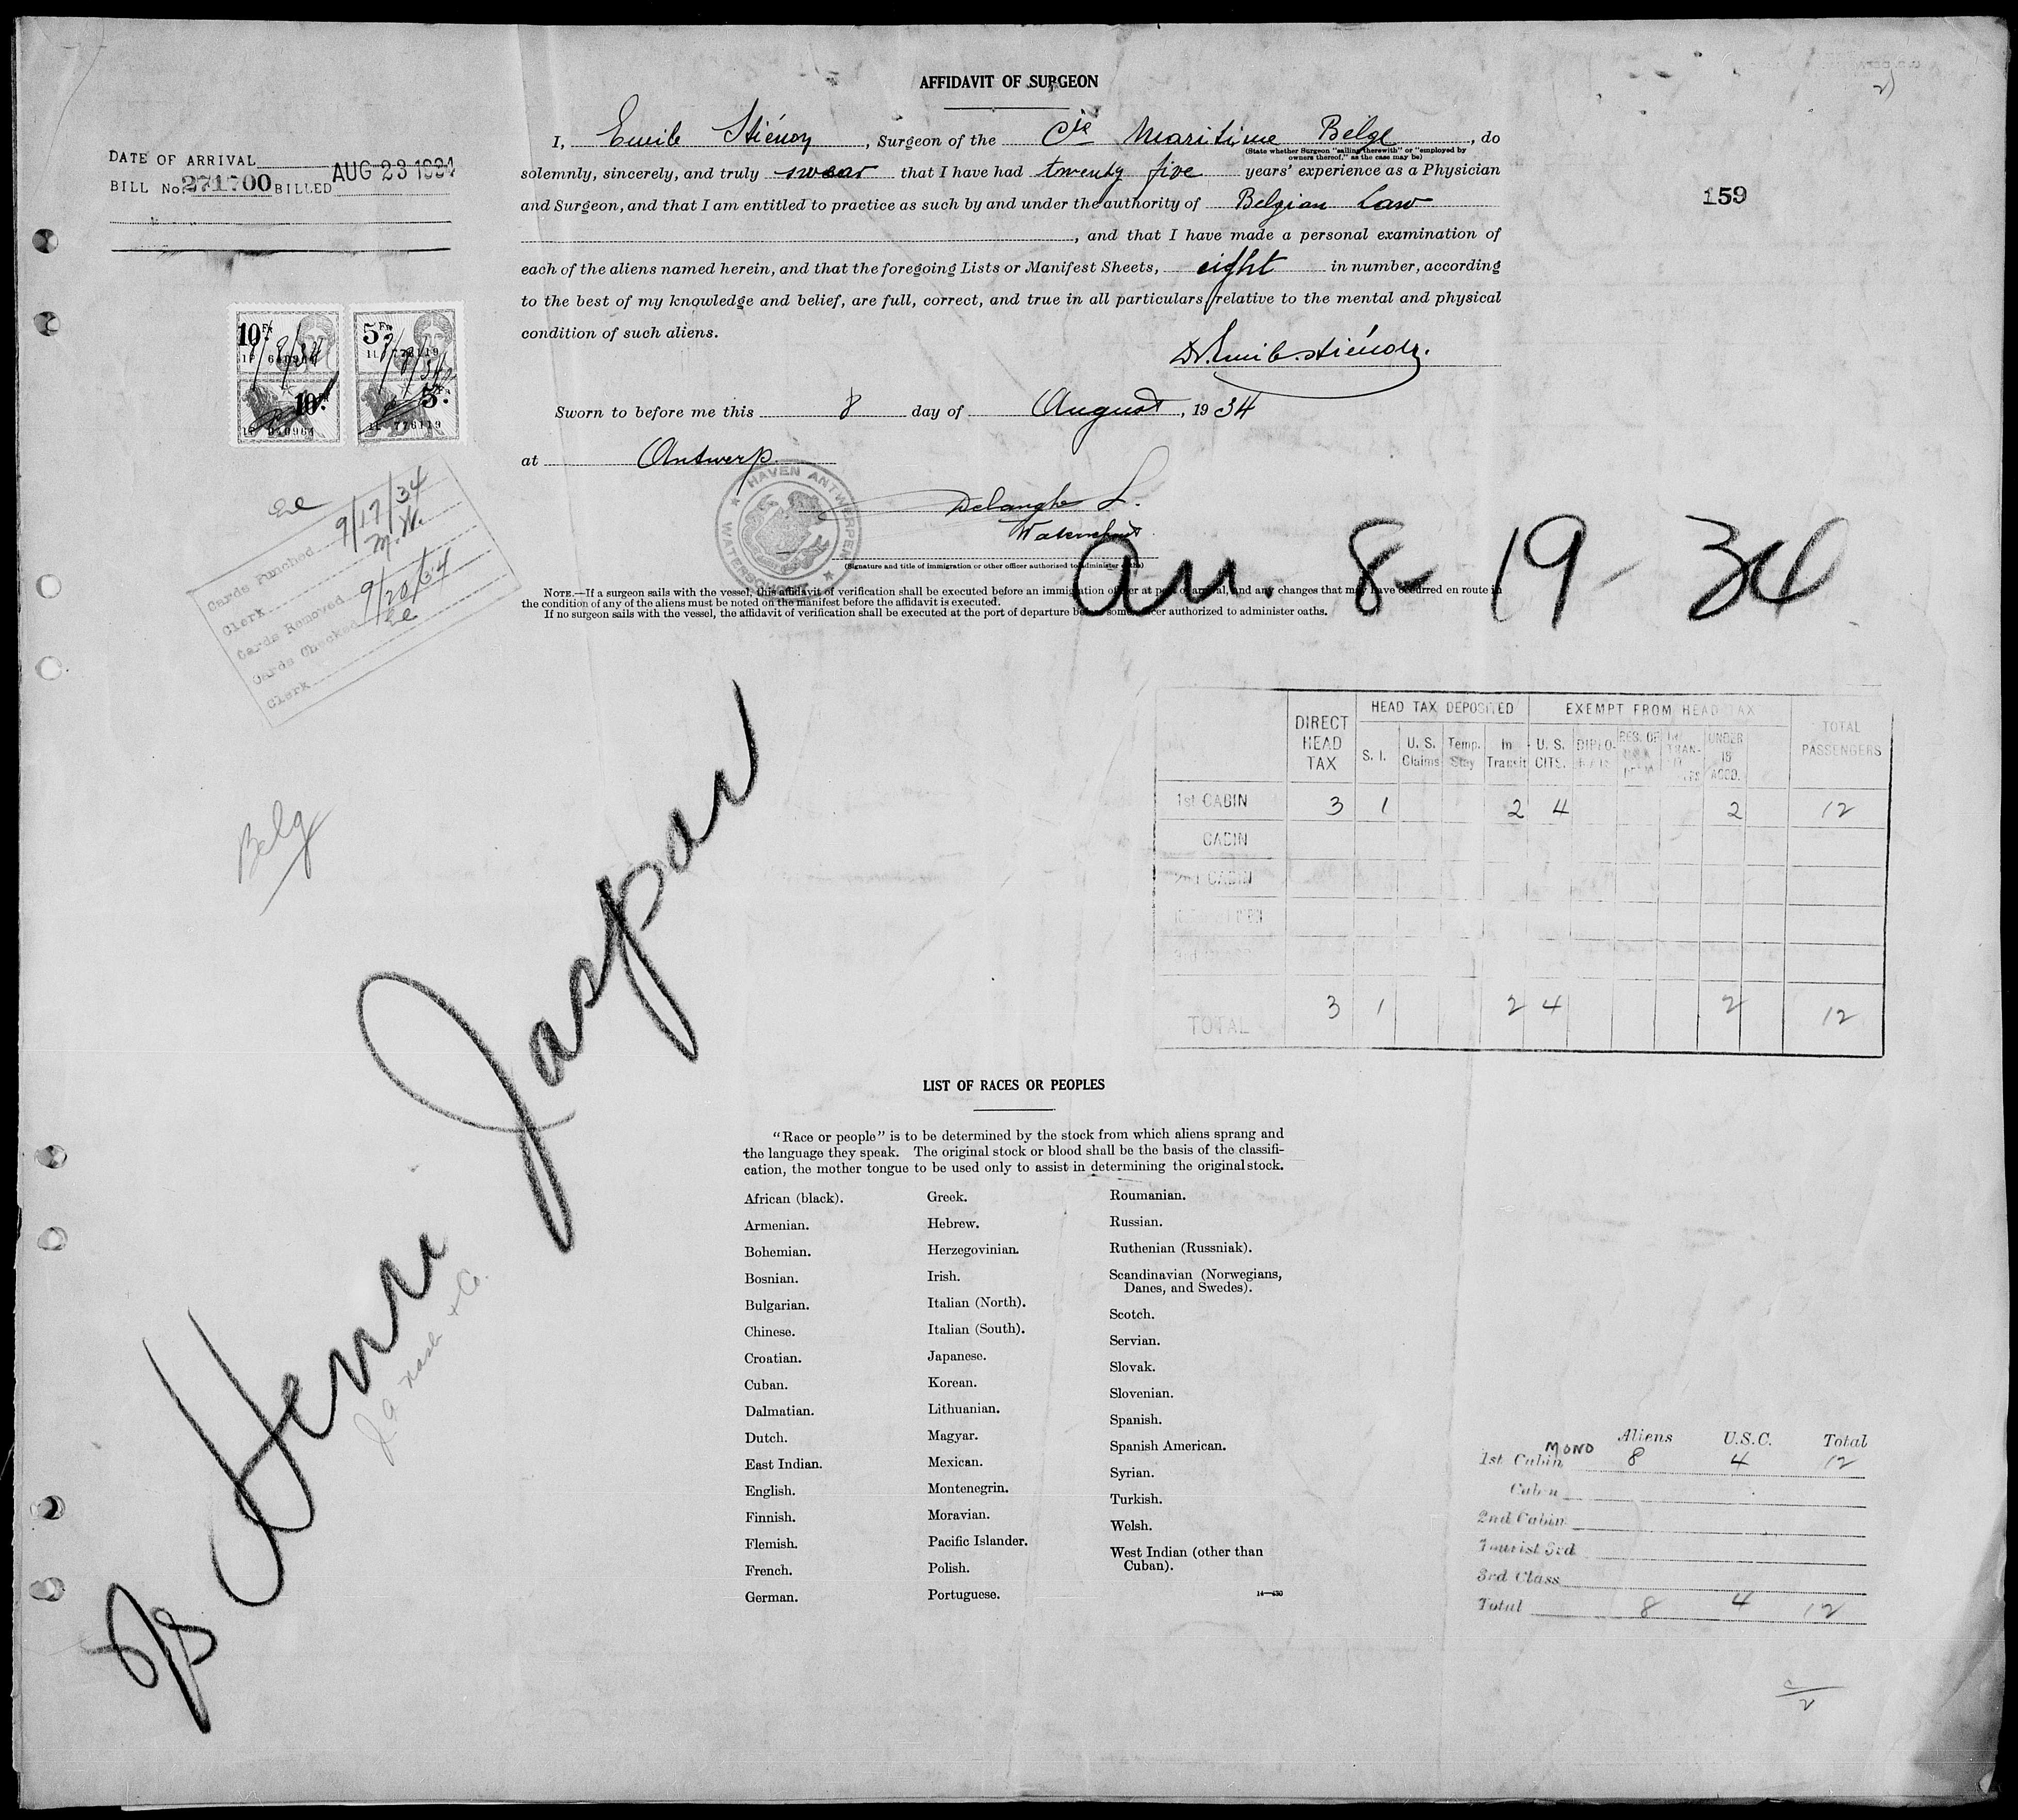 AFFIDAVIT OF SURGEON
I, Emile Stiénon, Surgeon of the Cie Maritime Belge, do
(State whether Surgeon "sailing therewith" or "employed by
owners thereof," as the case may be)
solemnly, sincerely, and truly swear that I have had twenty five years' experience as a Physician
and Surgeon, and that I am entitled to practice as such by and under the authority of Belgian Law
, and that I have made a personal examination of
each of the aliens named herein, and that the foregoing Lists or Manifest Sheets, eight in number, according
to the best of my knowledge and belief, are full, correct, and true in all particulars relative to the mental and physical
condition of such aliens.
Dr. Emile Stiénon.
Sworn to before me this 8 day of August, 1934
at Antwerp
HAVEN ANTWERPEN
WATERSCHOUT
Delanghe L.
Waterschout
(Signature and title of immigration or other officer authorized to administer oaths)
NOTE.—If a surgeon sails with the vessel, this affidavit of verification shall be executed before an immigration officer at port of arrival, and any changes that may have occurred en route in
the condition of any of the aliens must be noted on the manifest before the affidavit is executed.
If no surgeon sails with the vessel, the affidavit of verification shall be executed at the port of departure before some officer authorized to administer oaths.
DATE OF ARRIVAL
AUG 23 1934
BILL No. 271700 BILLED
159
10 Fr
5 Fr
10 Fr
5 Fr
776119
Cards Punched 9/17/34
Clerk M.W.
Cards Removed 9/20/34
Cards Checked
Clerk
Arr. 8-19-34
Belg
S/S Henri Jaspar
J A Nash + Co.
DIRECT HEAD TAX
HEAD TAX DEPOSITED
EXEMPT FROM HEAD TAX
TOTAL PASSENGERS
S. I. U. S. Claims Temp. Stay In Transit U. S. CITS. UNDER 16 ACCD.
1st CABIN 3 1 2 4 2 12
CABIN
2nd CABIN
TOTAL 3 1 2 4 2 12
LIST OF RACES OR PEOPLES
"Race or people" is to be determined by the stock from which aliens sprang and
the language they speak. The original stock or blood shall be the basis of the classifi-
cation, the mother tongue to be used only to assist in determining the original stock.
African (black).
Armenian.
Bohemian.
Bosnian.
Bulgarian.
Chinese.
Croatian.
Cuban.
Dalmatian.
Dutch.
East Indian.
English.
Finnish.
Flemish.
French.
German.
Greek.
Hebrew.
Herzegovinian.
Irish.
Italian (North).
Italian (South).
Japanese.
Korean.
Lithuanian.
Magyar.
Mexican.
Montenegrin.
Moravian.
Pacific Islander.
Polish.
Portuguese.
Roumanian.
Russian.
Ruthenian (Russniak).
Scandinavian (Norwegians,
Danes, and Swedes).
Scotch.
Servian.
Slovak.
Slovenian.
Spanish.
Spanish American.
Syrian.
Turkish.
Welsh.
West Indian (other than
Cuban).
14—430
Aliens U.S.C. Total
1st Cabin MONO 8 4 12
Cabin
2nd Cabin
Tourist 3rd
3rd Class
Total 8 4 12